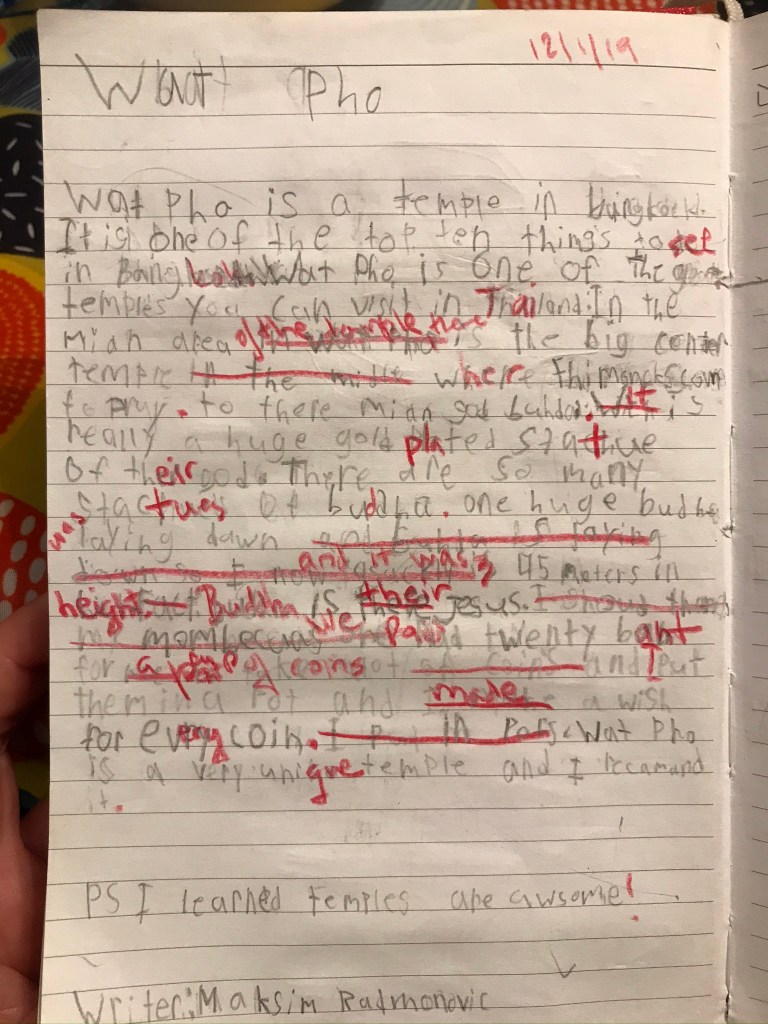 12/1/19
Wat Pho
Wat Pho is a temple in bangkock.
It is one of the top ten things to see
in Bangkok. Wat Pho is one of the
temples you can visit in Thailand. In the
mian area of the temple is the big center
temple in the middle where thi moncks com
to pray. to there mian god buhda. It is
really a huge gold plated stactue
of their gods. There are so many
stactues of buddha. one huge budha
was laying down and is laying
and it was 45 meters in
height. Buddha is their jesus.
my mom we paid twenty bant
for a coins and I put
them in a Pot and made a wish
for every coin. I p in Pot Wat Pho
is a very unique temple and I recamand
it.
PS I learned temples are awsome!
Writer: Maksim Radmonovic